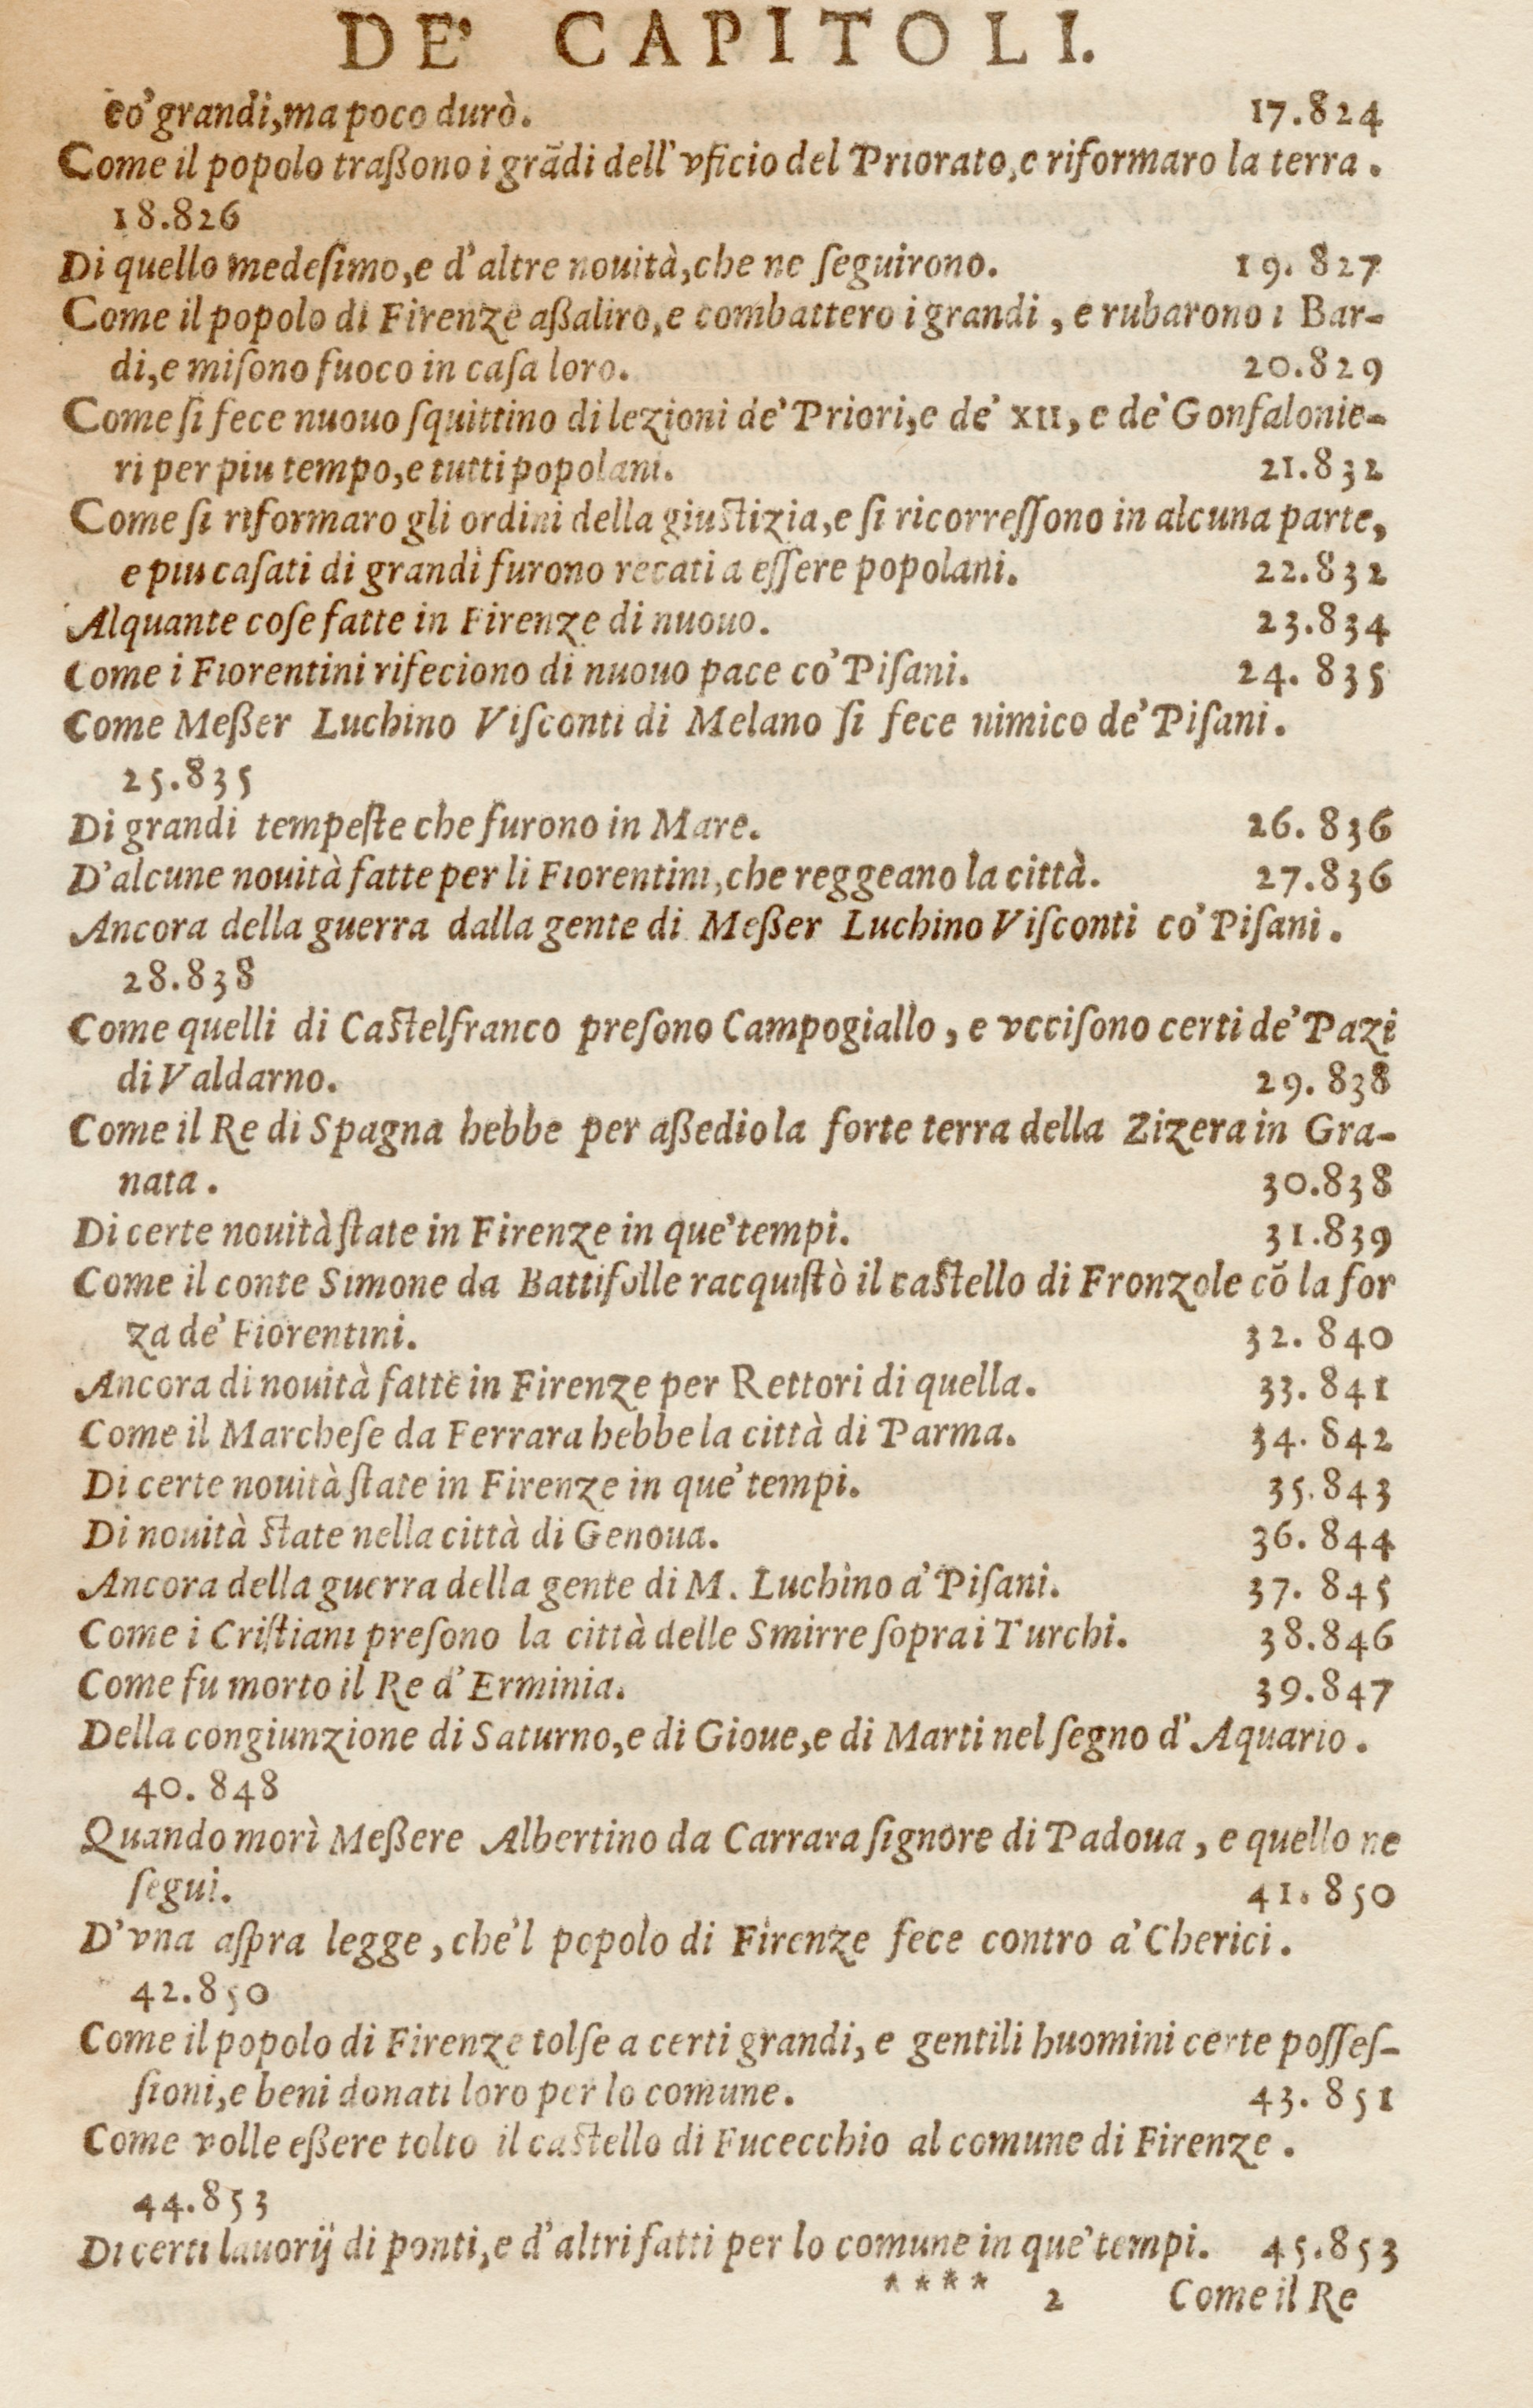 DE' CAPITOLI.
co' grandi, ma poco durò. 17.824
Come il popolo traßono i grãdi dell' vficio del Priorato, e riformaro la terra.
18.826
Di quello medeſimo, e d'altre nouità, che ne ſeguirono. 19. 827
Come il popolo di Firenze aßaliro, e combattero i grandi, e rubarono i Bar-
di, e miſono fuoco in caſa loro. 20.829
Come ſi fece nuouo ſquittino di lezioni de' Priori, e de' XII, e de' Gonfalonie-
ri per piu tempo, e tutti popolani. 21.832
Come ſi riformaro gli ordini della giuſtizia, e ſi ricorreſſono in alcuna parte,
e piu caſati di grandi furono recati a eſſere popolani. 22.832
Alquante coſe fatte in Firenze di nuouo. 23.834
Come i Fiorentini rifeciono di nuouo pace co' Piſani. 24. 835
Come Meßer Luchino Viſconti di Melano ſi fece nimico de' Piſani.
25.835
Di grandi tempeſte che furono in Mare. 26. 836
D'alcune nouità fatte per li Fiorentini, che reggeano la città. 27.836
Ancora della guerra dalla gente di Meßer Luchino Viſconti co' Piſani.
28.838
Come quelli di Caſtelfranco preſono Campogiallo, e vcciſono certi de' Pazi
di Valdarno. 29. 838
Come il Re di Spagna hebbe per aßedio la forte terra della Zizera in Gra-
nata. 30.838
Di certe nouità ſtate in Firenze in que' tempi. 31.839
Come il conte Simone da Battifolle racquiſtò il caſtello di Fronzole cõ la for
za de' Fiorentini. 32. 840
Ancora di nouità fatte in Firenze per Rettori di quella. 33. 841
Come il Marcheſe da Ferrara hebbe la città di Parma. 34. 842
Di certe nouità ſtate in Firenze in que' tempi. 35.843
Di nouità ſtate nella città di Genoua. 36. 844
Ancora della guerra della gente di M. Luchino a' Piſani. 37. 845
Come i Criſtiani preſono la città delle Smirre ſopra i Turchi. 38.846
Come fu morto il Re d'Erminia. 39.847
Della congiunzione di Saturno, e di Gioue, e di Marti nel ſegno d'Aquario.
40. 848
Quando morì Meßere Albertino da Carrara ſignore di Padoua, e quello ne
ſegui. 41. 850
D'vna aſpra legge, che'l popolo di Firenze fece contro a' Cherici.
42.850
Come il popolo di Firenze tolſe a certi grandi, e gentili huomini certe poſſeſ-
ſioni, e beni donati loro per lo comune. 43. 851
Come volle eßere tolto il caſtello di Fucecchio al comune di Firenze.
44.853
Di certi lauorij di ponti, e d'altri fatti per lo comune in que' tempi. 45.853
**** 2 Come il Re